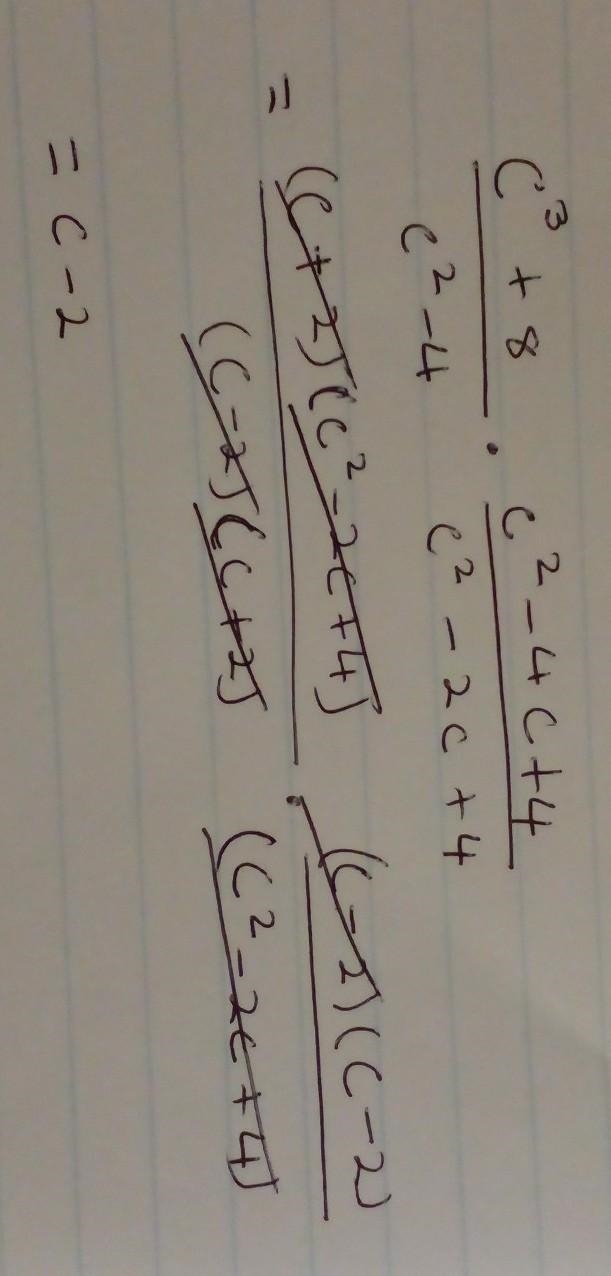 C³ + 8 / c² - 4 · c² - 4c + 4 / c² - 2c + 4
= (c + 2)(c² - 2c + 4) / (c - 2)(c + 2) · (c - 2)(c - 2) / (c² - 2c + 4)
= c - 2